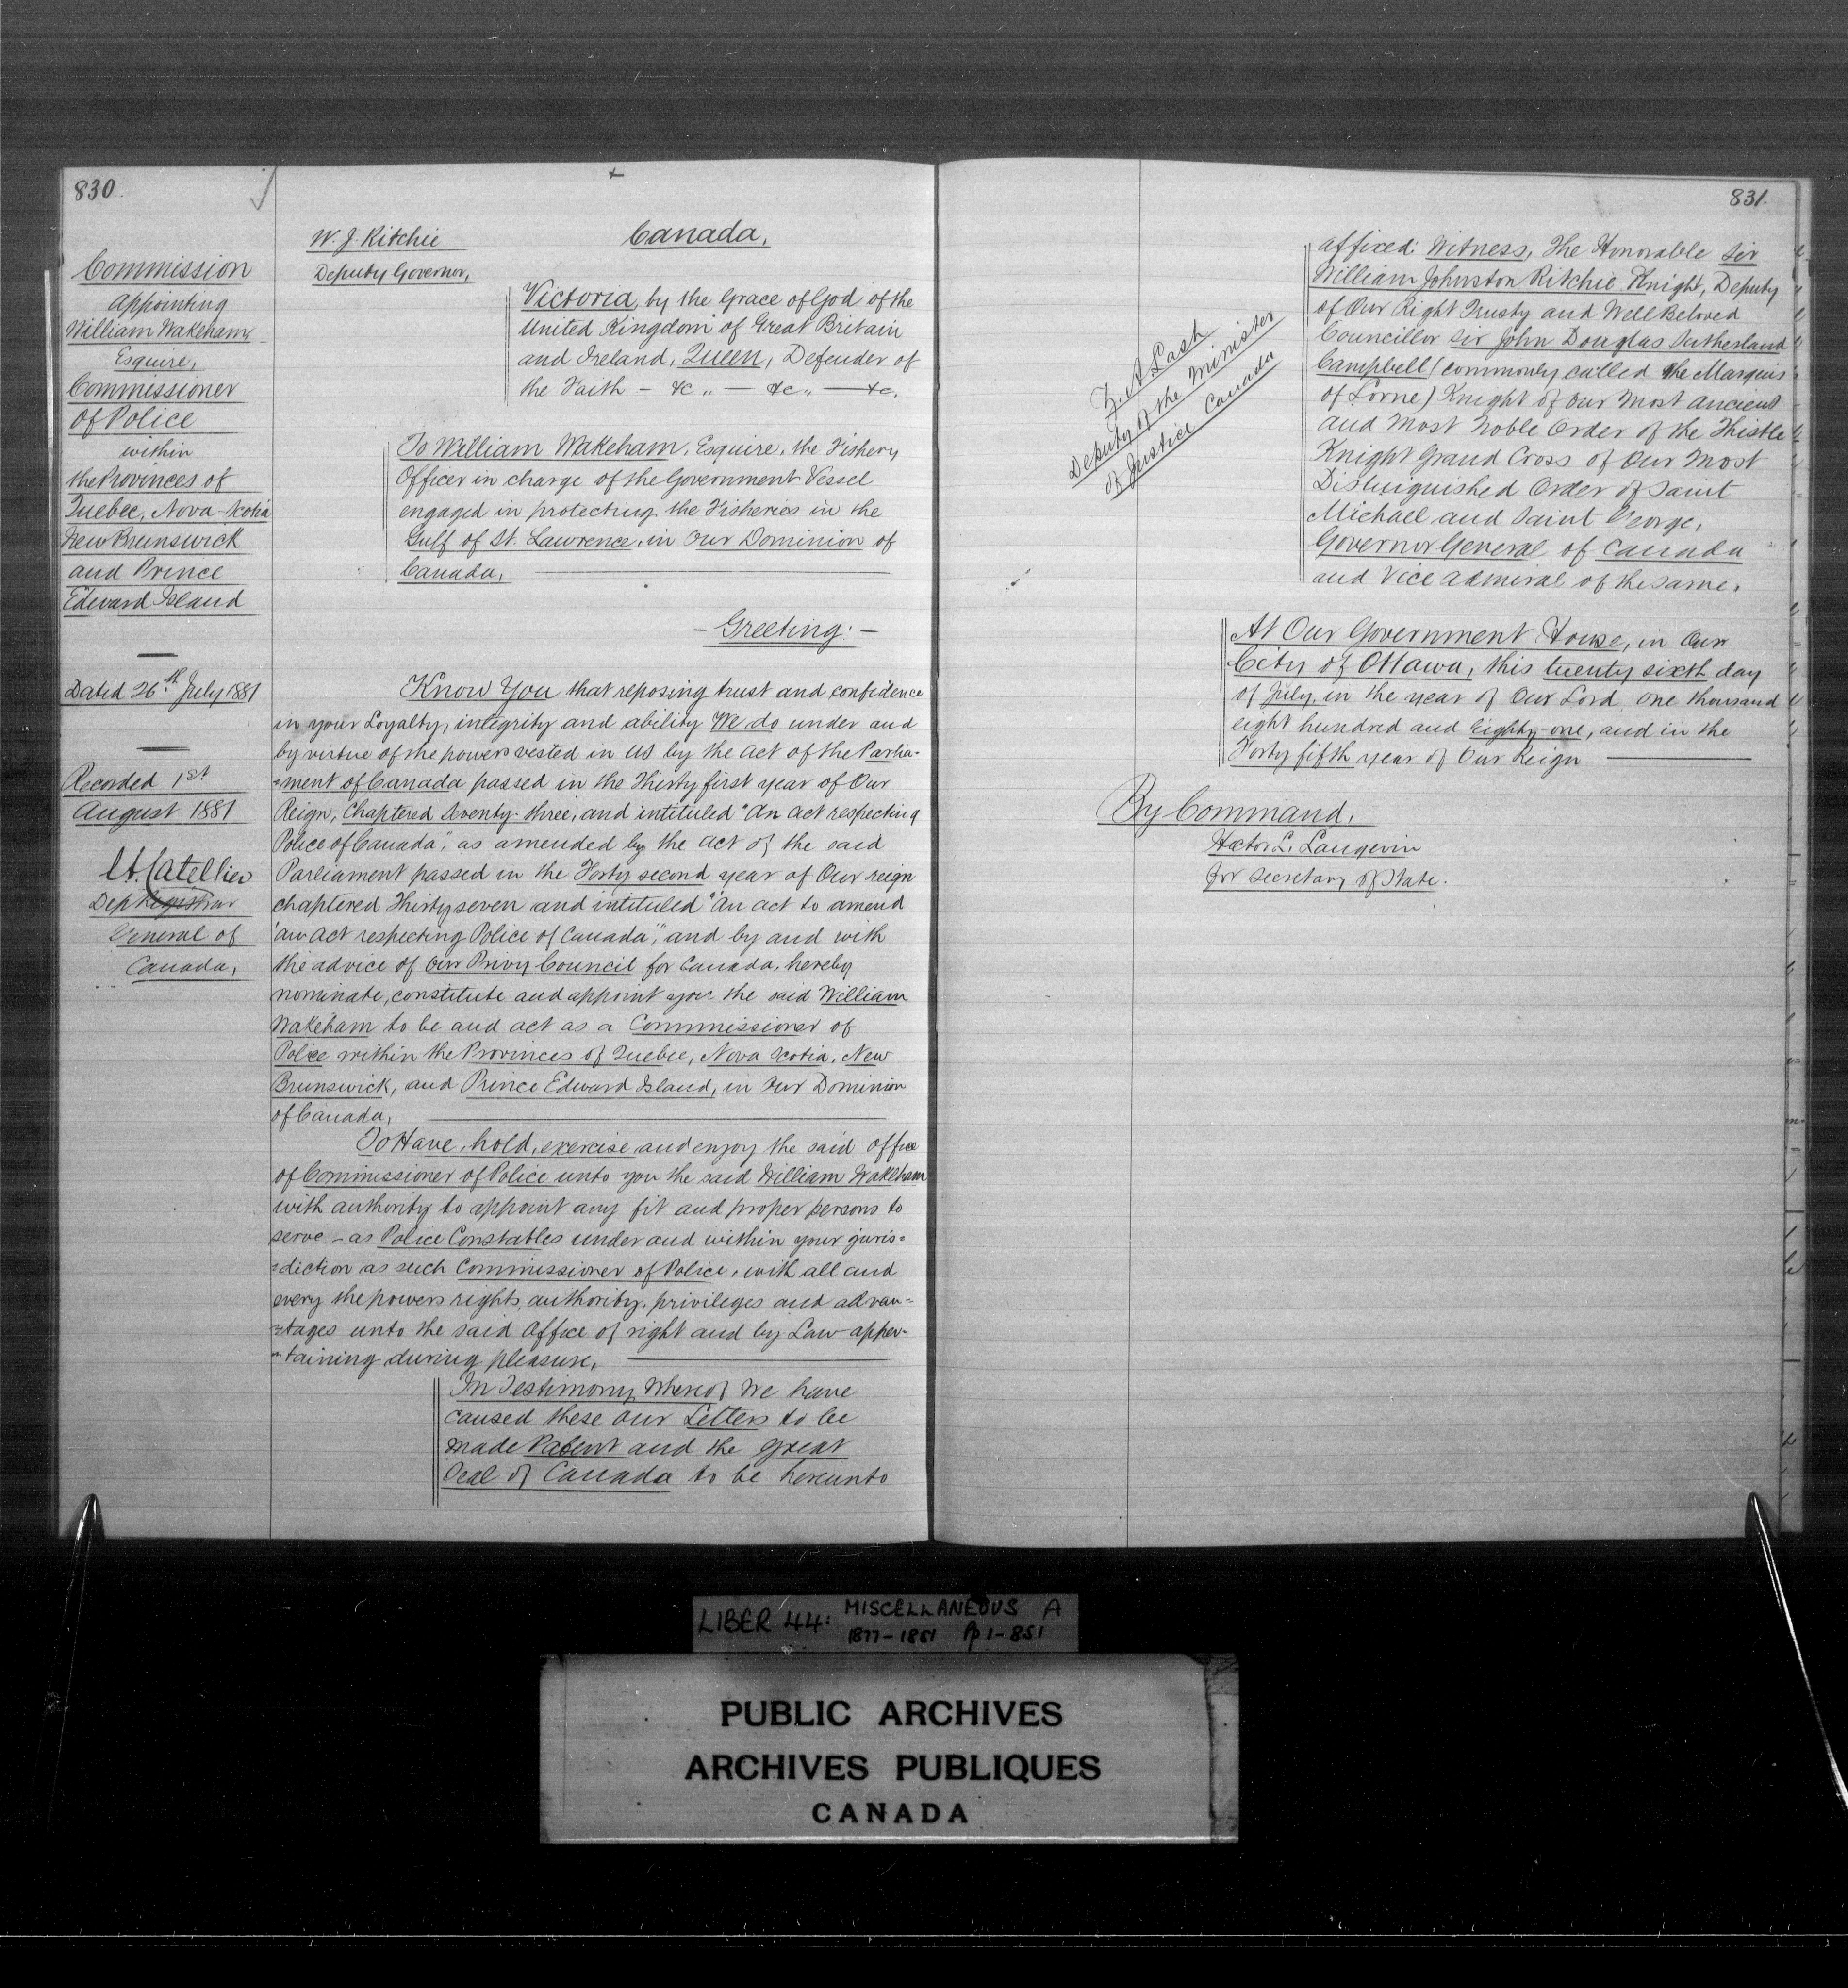 830.
Commission
appointing
William Wakeham,
Esquire,
Commissioner
of Police
within
the Provinces of
Quebec, Nova-Scotia
New Brunswick
and Prince
Edward Island
Dated 26th July 1881
Recorded 1st
August 1881
Lt. Catellier
Dep Registrar
General of
Canada,
W. J. Ritchie
Deputy Governor,
Canada,
Victoria, by the Grace of God of the
United Kingdom of Great Britain
and Ireland, Queen, Defender of
the Faith - &c ,, - &c ,, - &c.
To William Wakeham, Esquire, the Fishery
Officer in charge of the Government Vessel
engaged in protecting the Fisheries in the
Gulf of St. Lawrence, in Our Dominion of
Canada,
- Greeting: -
Know You that reposing trust and confidence
in your Loyalty, integrity and ability We do under and
by virtue of the powers vested in us by the Act of the Parlia-
=ment of Canada passed in the Thirty first year of Our
Reign, Chaptered Seventy-three, and intituled "An Act respecting
Police of Canada," as amended by the Act of the said
Parliament passed in the Forty second year of Our reign
chaptered Thirty seven and intituled "An act to amend
'an Act respecting Police of Canada'," and by and with
the advice of Our Privy Council for Canada, hereby
nominate, constitute and appoint you the said William
Wakeham to be and act as a Commissioner of
Police within the Provinces of Quebec, Nova Scotia, New
Brunswick, and Prince Edward Island, in Our Dominion
of Canada,
To Have, hold, exercise and enjoy the said office
of Commissioner of Police unto you the said William Wakeham
with authority to appoint any fit and proper persons to
serve - as Police Constables under and within your juris=
=diction as such Commissioner of Police, with all and
every the powers rights, authority, privileges and advan-
=tages unto the said Office of right and by Law apper-
=taining during pleasure,
In Testimony Whereof We have
caused these our Letters to be
made Patent and the Great
Seal of Canada to be hereunto
831.
Z. A Lash
Deputy of the Minister
of Justice Canada
affixed: Witness, The Honorable Sir
William Johnston Ritchie Knight, Deputy
of Our Right Trusty and Well Beloved
Councillor Sir John Douglas Sutherland
Campbell (commonly called the Marquis
of Lorne) Knight of Our Most Ancient
and Most Noble Order of the Thistle
Knight Grand Cross of Our Most
Distinguished Order of Saint
Michael and Saint George,
Governor General of Canada
and Vice admiral of the same.
At Our Government House, in Our
City of Ottawa, this twenty sixth day
of July, in the year of Our Lord, one thousand
eight hundred and Eighty-one, and in the
Forty fifth year of Our Reign
By Command,
Hector L. Langevin
for Secretary of State.
LIBER 44: MISCELLANEOUS A
1877-1881 Pp 1-851
PUBLIC ARCHIVES
ARCHIVES PUBLIQUES
CANADA